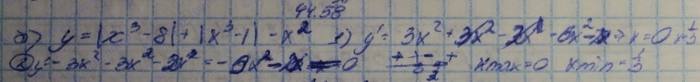 44.58
б) y = |x³ - 8| + |x³ - 1| - x² 1) y' = 3x² + 3x² - 2x = 6x² - 2x x = 0 x = 1/3
2) y' = -3x² - 3x² - 2x = -6x² - 2x = 0 xmax = 0 xmin = 1/3